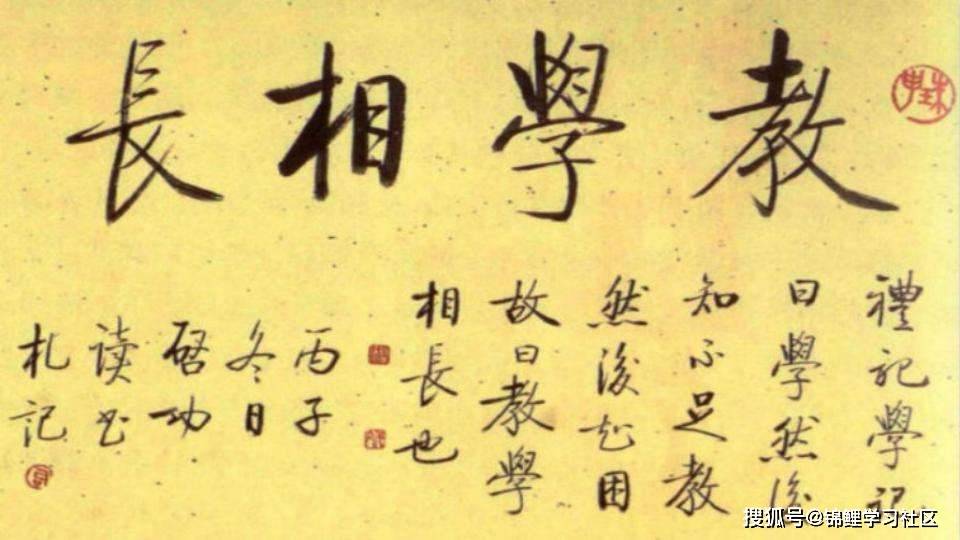 教學相長
禮記學記
曰學然後
知不足教
然後知困
故曰教學
相長也
丙子
冬日
啓功
读书
札记
搜狐号@锦鲤学习社区